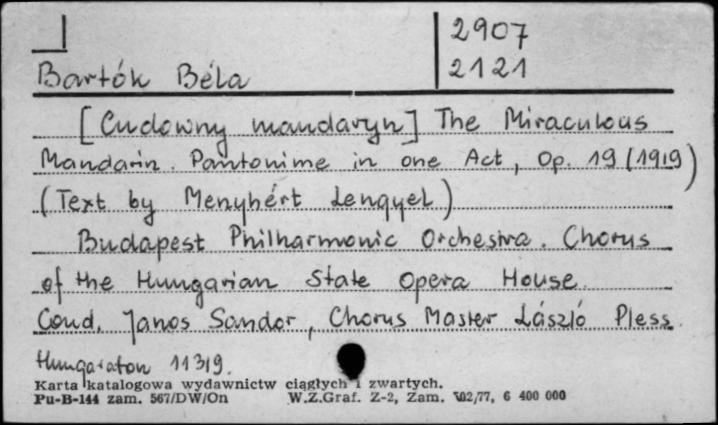 2907
2121
Bartók Béla
[Cudowny mandaryn] The Miraculous
Mandarin. Pantonime in one Act, Op. 19 (1919)
(Text by Menyhért Lengyel)
Budapest Philharmonic Orchestra. Chorus
of the Hungarian State Opera House.
Cond. Janos Sandor, Chorus Master László Pless.
Hungaraton 11319.
Karta katalogowa wydawnictw ciągłych i zwartych.
Pu-B-144 zam. 567/DW/On W.Z.Graf. Z-2, Zam. 02/77, 6 400 000